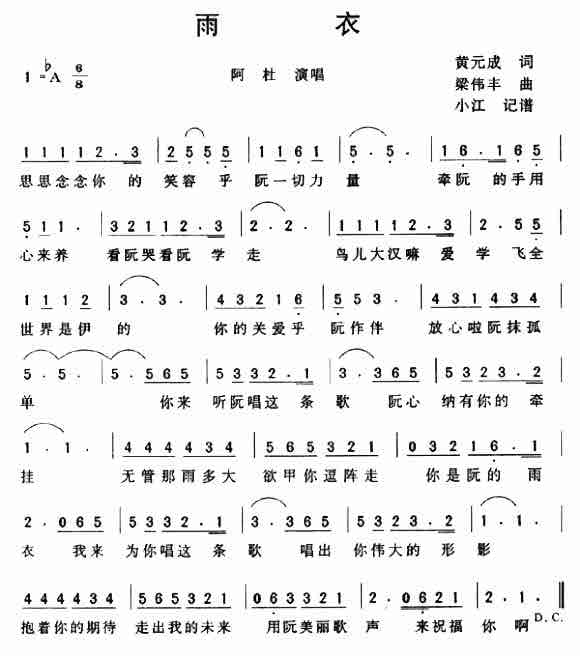 雨 衣
1=♭A 6/8
阿 杜 演唱
黄元成 词
梁伟丰 曲
小江 记谱
1 1 1 1 1 2 . 3 | 2 5 5 5 | 1 1 6 1 | 5 . 5 . | 1 6 . 1 6 5 |
思思念念你 的 笑容 乎 阮一切力 量 牵阮 的手用
5 1 1 . | 3 2 1 1 2 . 3 | 2 . 2 . | 1 1 1 1 2 . 3 | 2 . 5 5 |
心来养 看阮哭看阮 学 走 鸟儿大汉嘛 爱 学 飞全
1 1 1 2 | 3 . 3 . | 4 3 2 1 6 | 5 5 3 . | 4 3 1 4 3 4 |
世界是伊 的 你的关爱乎 阮作伴 放心啦阮抹孤
5 . 5 . | 5 . 5 6 5 | 5 3 3 2 . 1 | 3 . 3 6 5 | 5 3 2 3 . 2 |
单 你来 听阮唱这 条 歌 阮心 纳有你的 牵
1 . 1 . | 4 4 4 4 3 4 | 5 6 5 3 2 1 | 0 3 2 1 6 . 1 |
挂 无管那雨多大 欲甲你逗阵走 你是阮的 雨
2 . 0 6 5 | 5 3 3 2 . 1 | 3 . 0 6 5 | 5 3 2 3 . 2 | 1 . 1 . |
衣 我来 为你唱这 条 歌 唱出 你伟大的 形 影
4 4 4 4 3 4 | 5 6 5 3 2 1 | 0 6 3 3 2 1 | 2 . 0 6 2 1 | 2 . 1 . ‖
抱着你的期待 走出我的未来 用阮美丽歌 声 来祝福 你 啊
D.C.